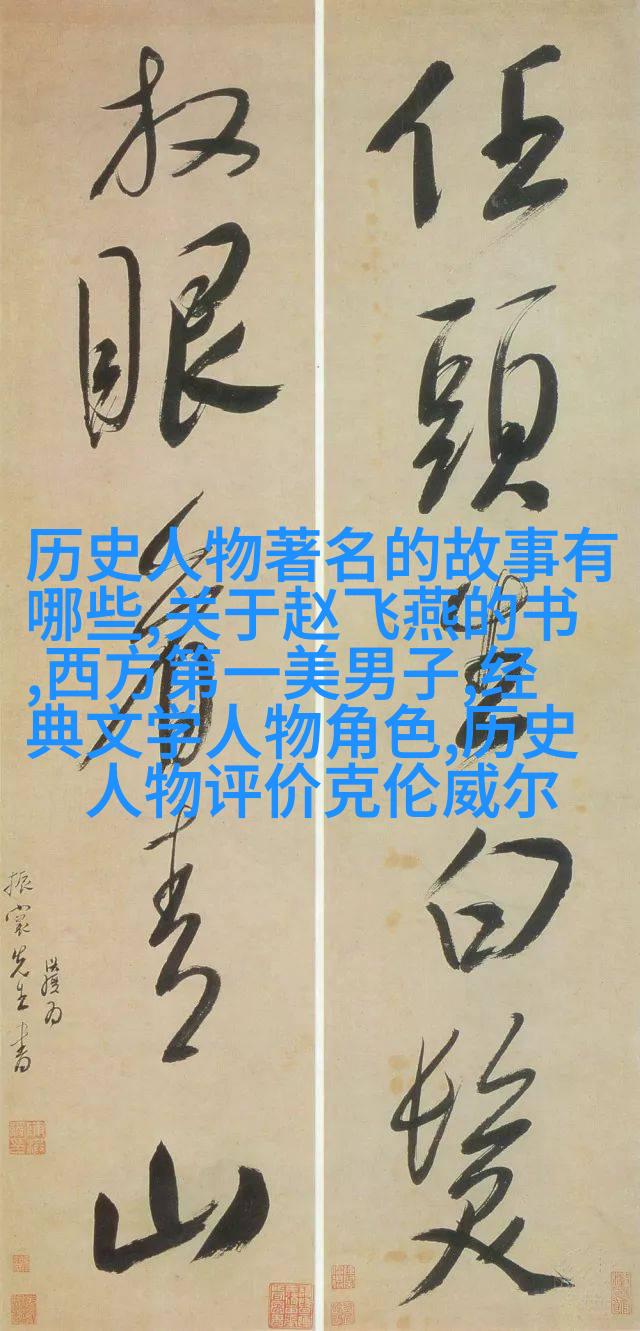 任頭生白髮
放眼看青山
先生書
历史人物著名的故事有
哪些,关于赵飞燕的书
,西方第一美男子,经
典文学人物角色,历史
人物评价克伦威尔